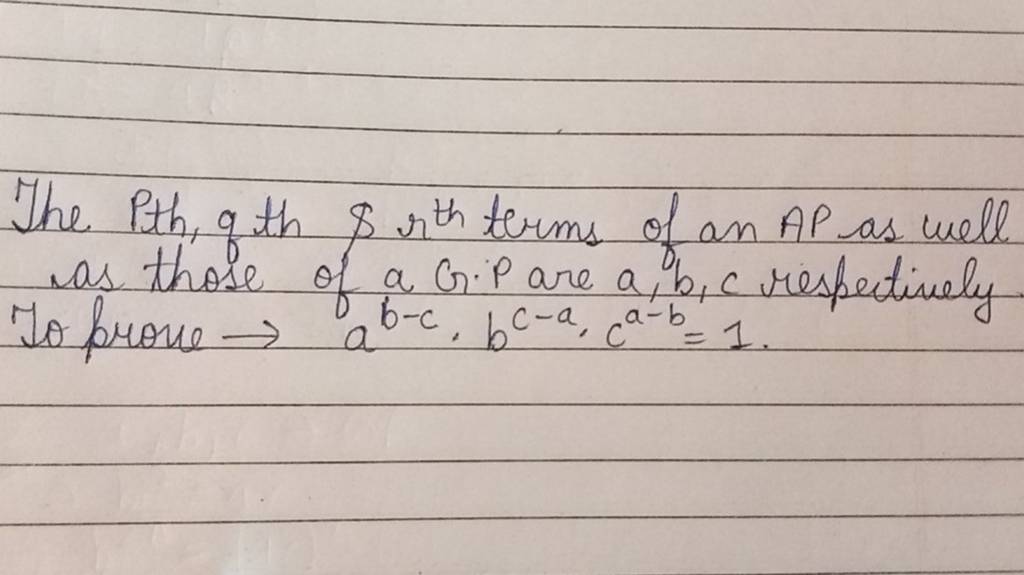 The Pth, qth & rth terms of an AP as well
as those of a G.P are a, b, c respectively.
To prove → a^{b-c} . b^{c-a} . c^{a-b} = 1.